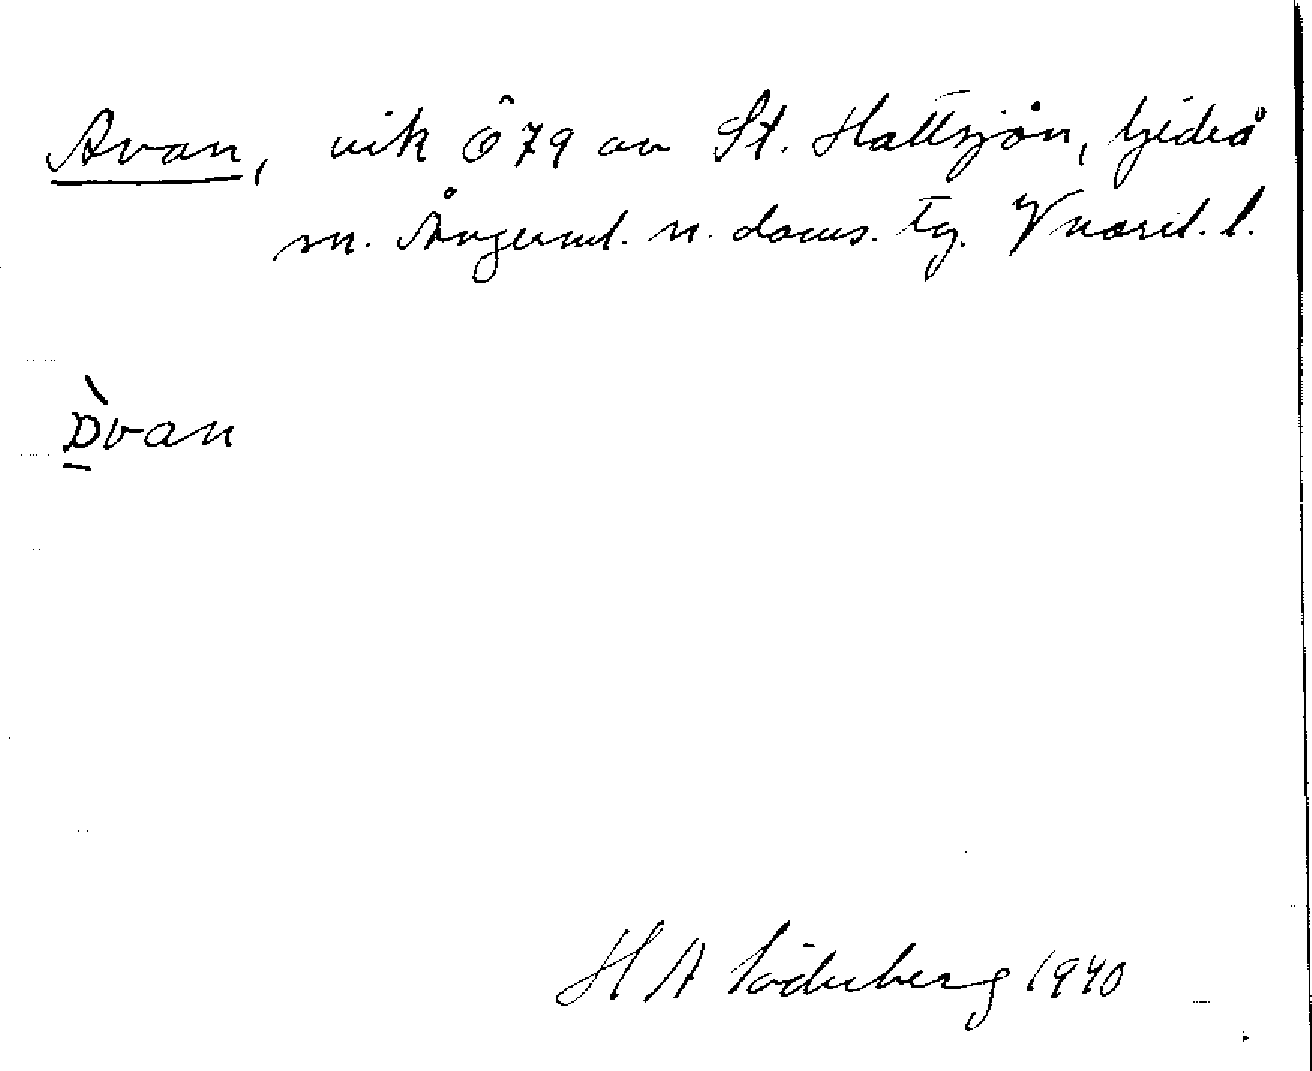 Avan, vik ö 79 av St. Hattsjön, Gideå
sn. Ångerml. n. doms. tg. Vnorrl. l.
Dvan
H A Söderberg 1940